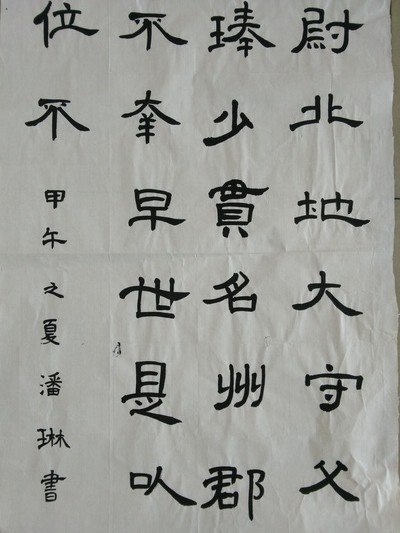 尉北地大守父
琫少貫名州郡
不幸早世是以
位不
甲午之夏潘琳書